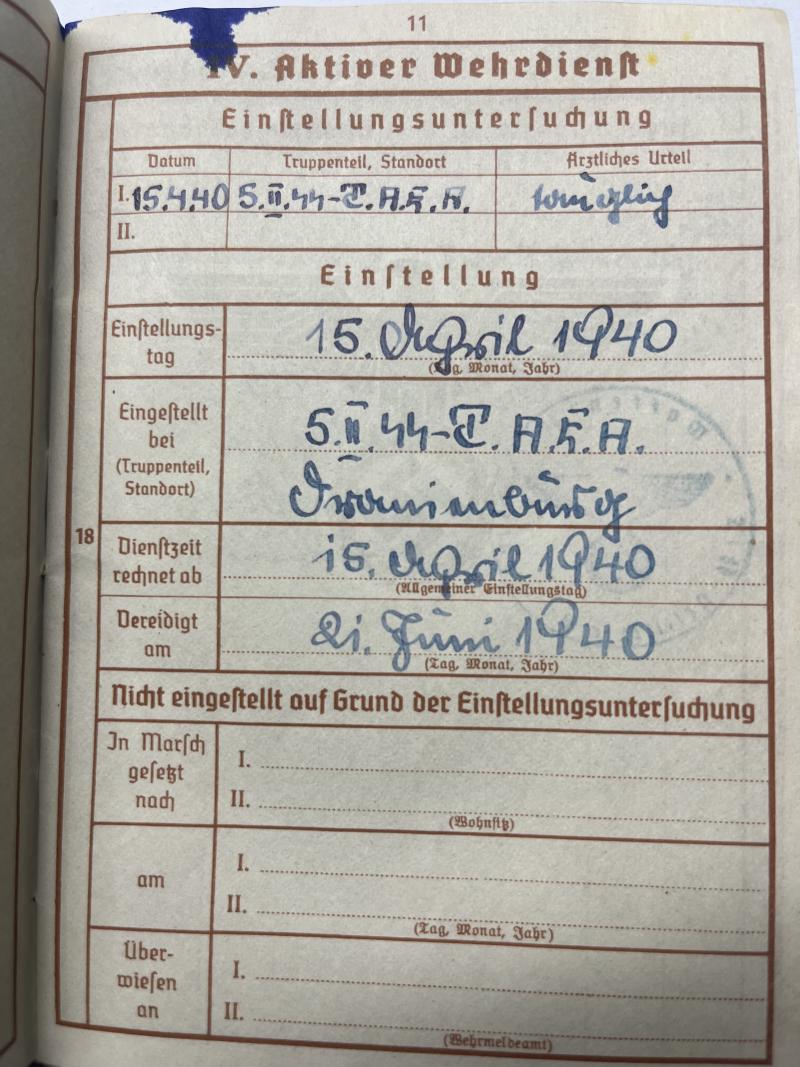 11
IV. Aktiver Wehrdienst
Einstellungsuntersuchung
Datum Truppenteil, Standort Ärztliches Urteil
I. 15.4.40 5.II.SS-T.A.E.A. tauglich
II.
Einstellung
Einstellungs-
tag
15. April 1940
(Tag, Monat, Jahr)
Eingestellt
bei
(Truppenteil,
Standort)
5.II.SS-T.A.E.A.
Oranienburg
18
Dienstzeit
rechnet ab
15. April 1940
(Allgemeiner Einstellungstag)
Vereidigt
am
21. Juni 1940
(Tag, Monat, Jahr)
Nicht eingestellt auf Grund der Einstellungsuntersuchung
In Marsch
gesetzt
nach
I.
II.
(Wohnsitz)
am
I.
II.
(Tag, Monat, Jahr)
Über-
wiesen
an
I.
II.
(Wehrmeldeamt)